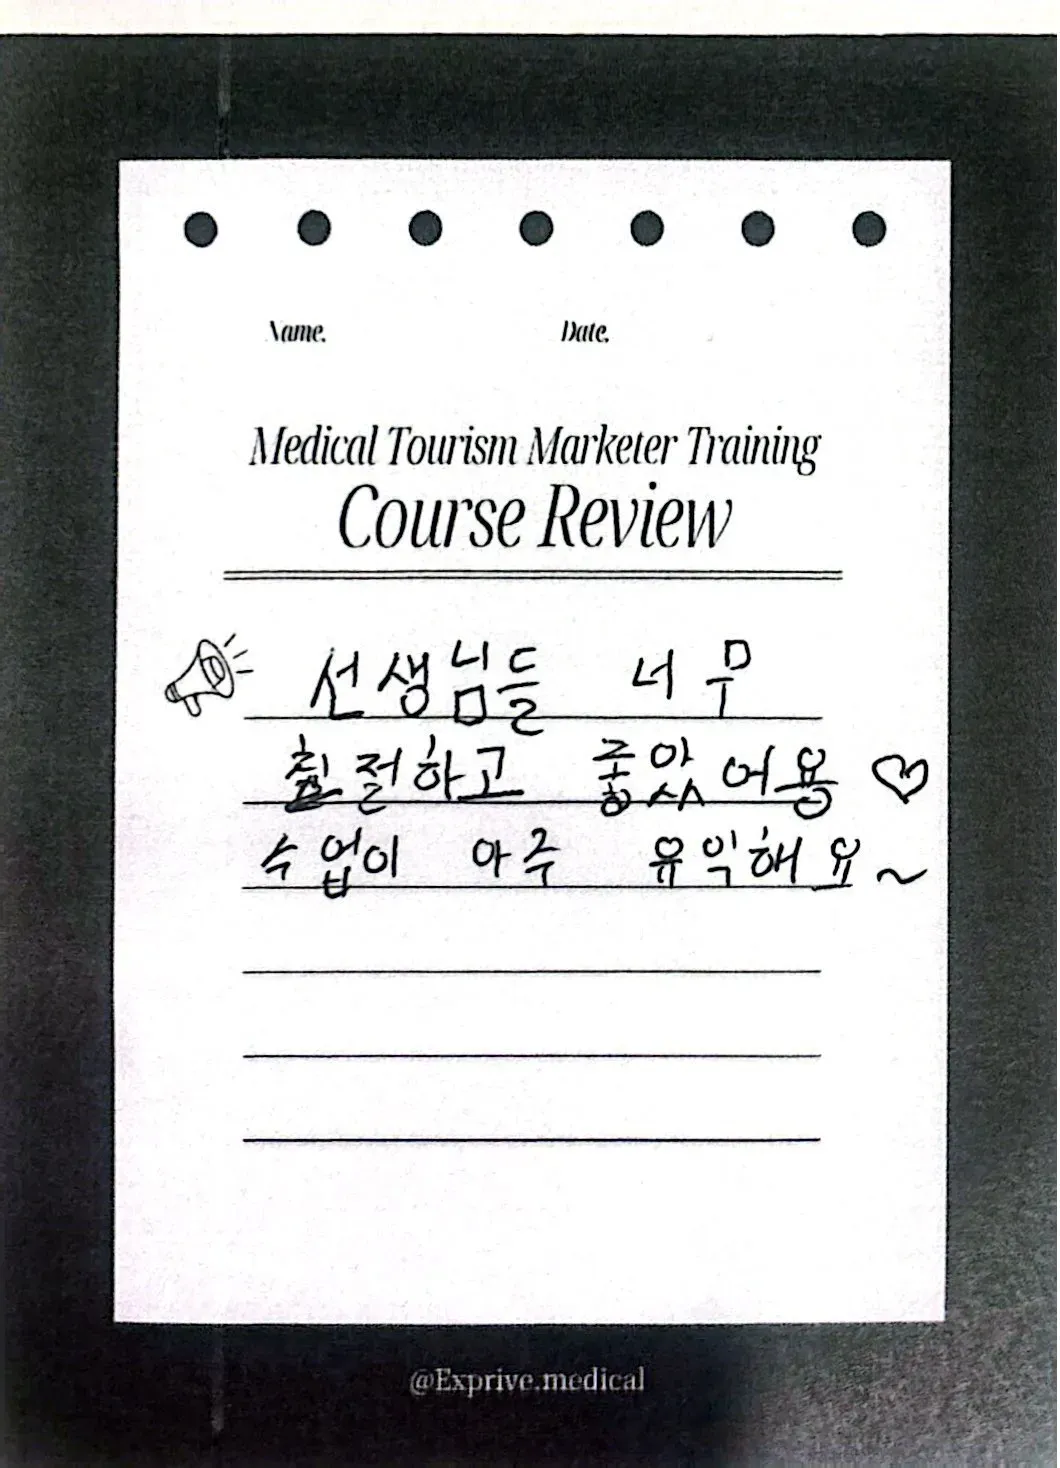 Name. Date.
Medical Tourism Marketer Training
Course Review
선생님들 너무
친절하고 좋았어용 ♡
수업이 아주 유익해요~
@Exprive.medical